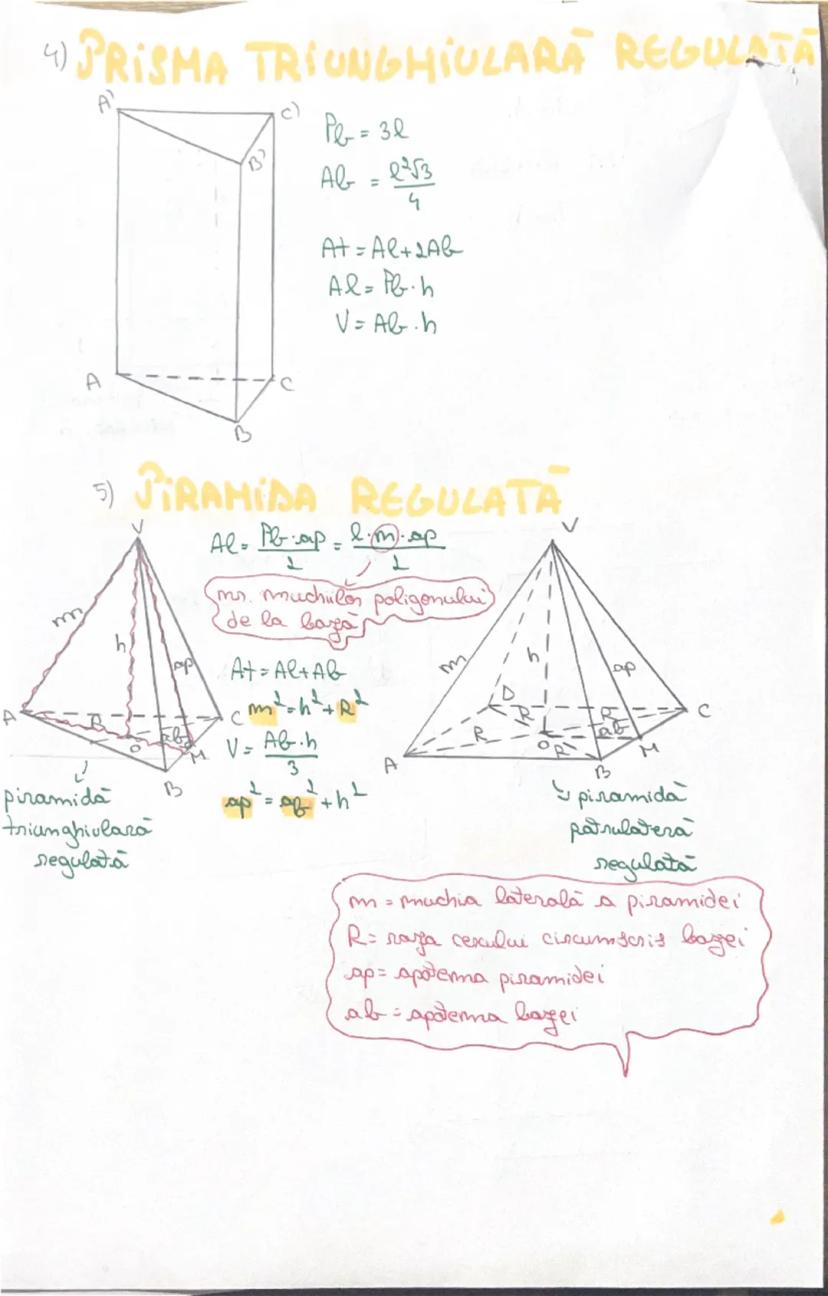 4) PRISMA TRIUNGHIULARĂ REGULATĂ
A' C'
B'
Pb = 3l
Ab = l²√3/4
At = Al+2Ab
Al = Pb·h
V = Ab·h
A C
B
5) PIRAMIDA REGULATĂ
V
Al = Pb·ap/2 = l·m·ap/2
nr. muchiilor poligonului
de la bază
m h ap
A R O ab M C
B
At = Al+Ab
m² = h²+R²
V = Ab·h/3
ap² = ab²+h²
piramidă
triunghiulară
regulată
V
m h ap
D
A R R O R ab M C
B
piramidă
patrulateră
regulată
m = muchia laterală a piramidei
R = raza cercului circumscris bazei
ap = apotema piramidei
ab = apotema bazei